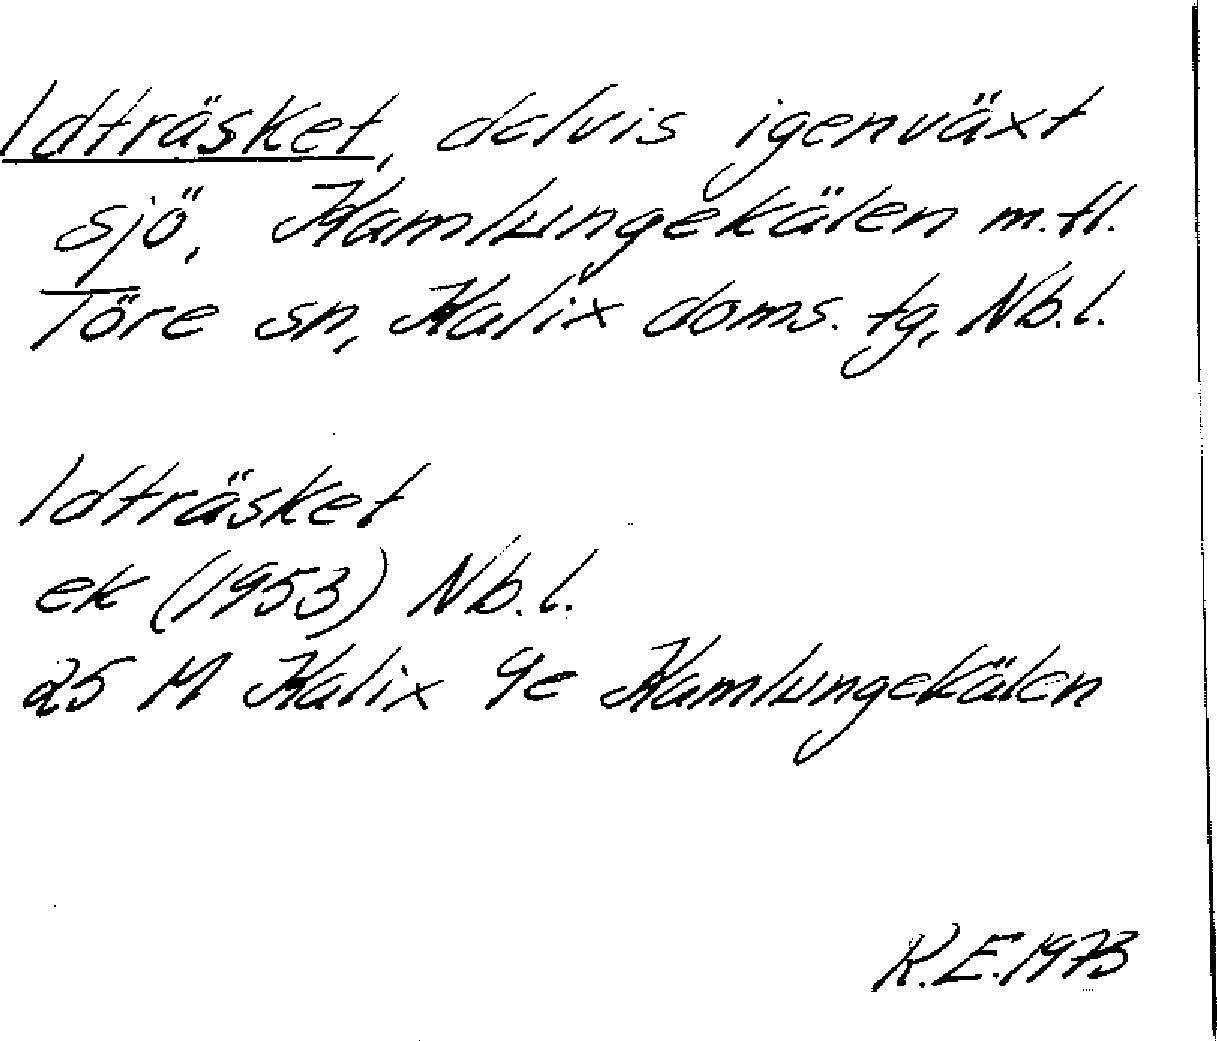 Idträsket, delvis igenväxt
sjö, Kamlungekälen m.fl.
Töre sn, Kalix doms. tg, Nb.l.
Idträsket
ek (1953) Nb.l.
25 M Kalix 9e Kamlungekälen
K.E.1973